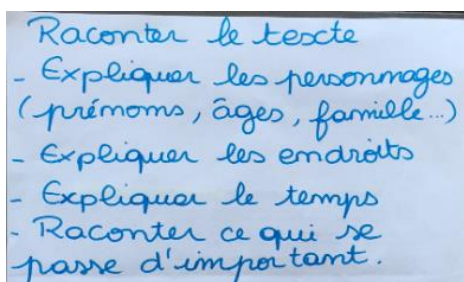 Raconter le texcte
- Expliquer les personnages
(prénoms, âges, famille...)
- Expliquer les endroits
- Expliquer le temps
- Raconter ce qui se
passe d'important.